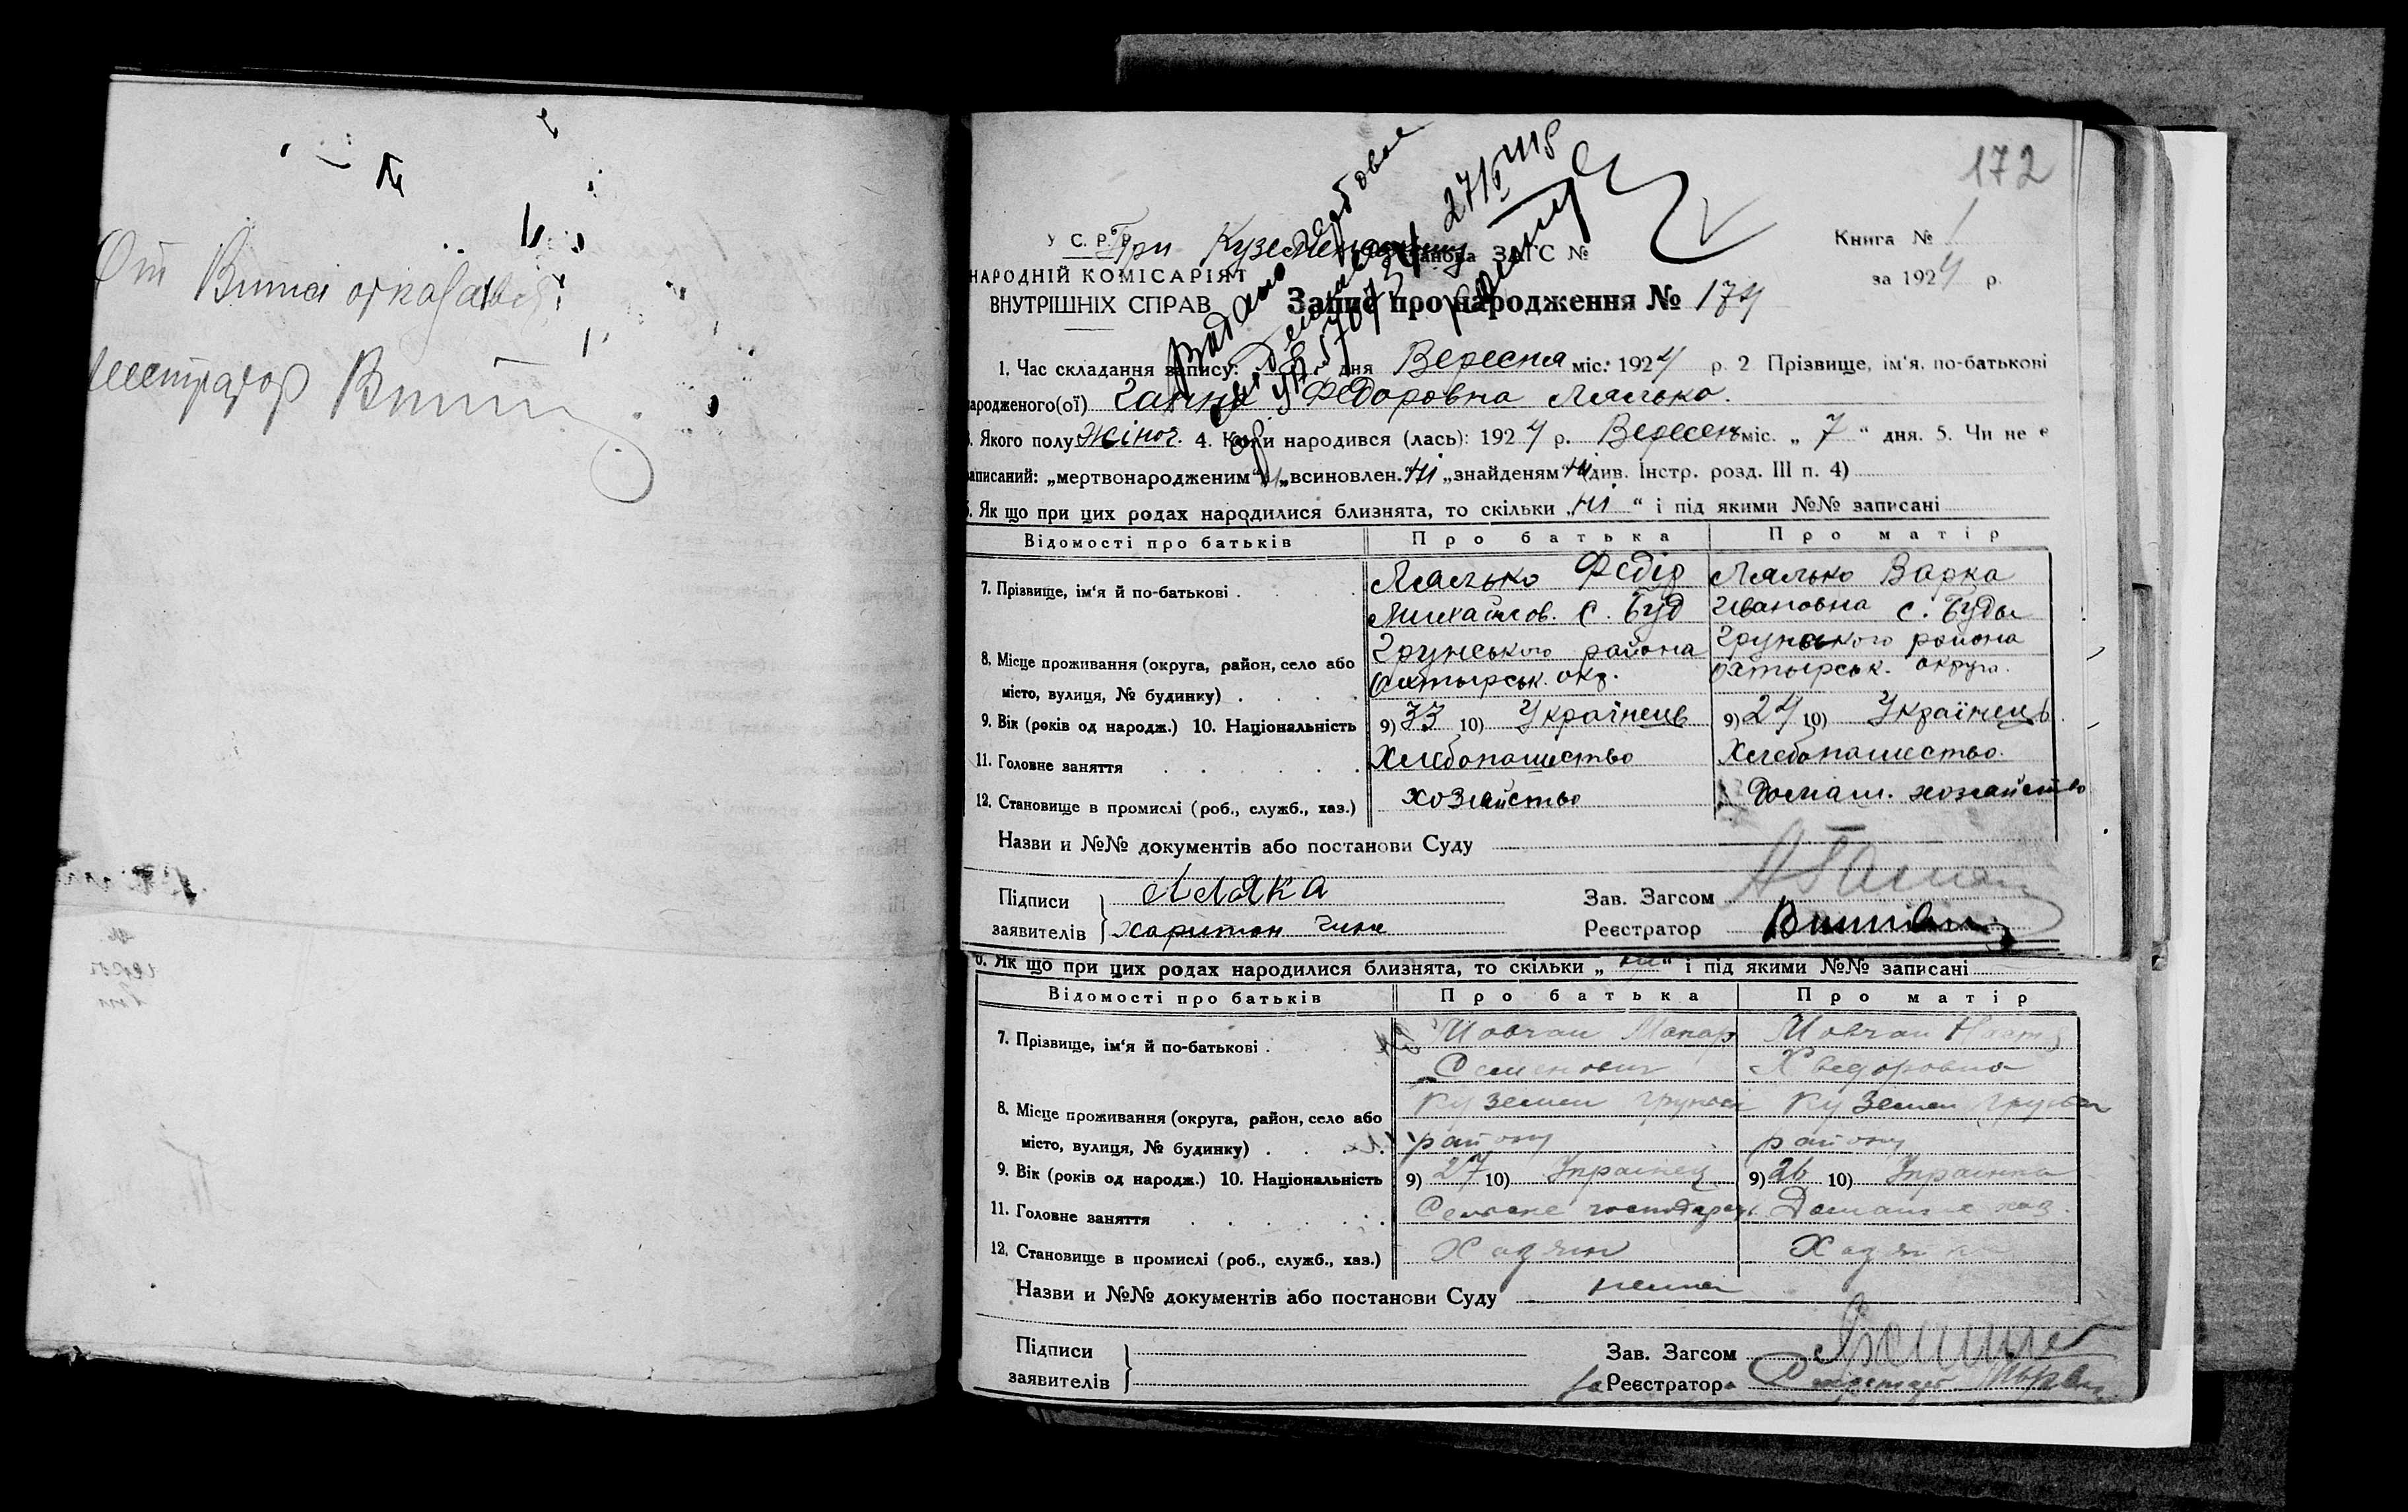 От
Реєстратор
172
У. С. Р. Р. При Кузем установа ЗАГС №
Книга № 1
НАРОДНІЙ КОМІСАРІЯТ
ВНУТРІШНІХ СПРАВ
за 1924 р.
Запис про народження № 174
Видано
1. Час складання запису: дня Вересня міс. 1924 р. 2 Прізвище, ім'я, по-батькові
народженого(ої) Ганна Федоровна Лялько.
3. Якого полу жіноч. 4. Коли народився (лась): 1924 р. Вересень міс. „ 7 “ дня. 5. Чи не є
записаний: „мертвонародженим“ ні „всиновлен.“ ні „знайденям“ ні (див. Інстр. розд. III п. 4)
6. Як що при цих родах народилися близнята, то скільки „ ні “ і під якими №№ записані
Відомості про батьків Про батька Про матір
7. Прізвище, ім'я й по-батькові . Лялько Федір Лялько Варка
Михайлов. с. Буд Ивановна с. Буды
8. Місце проживання (округа, район, село або Грунського района Грунського района
місто, вулиця, № будинку) . Охтырськ. окр. Охтырськ. округа.
9. Вік (років од народж.) 10. Національність 9) 33 10) Українець 9) 24 10) Українець
11. Головне заняття Хлебопашество Хлебопашество.
12. Становище в промислі (роб., служб., хаз.) хозяйство Домаш. хозяйство
Назви и №№ документів або постанови Суду
Підписи Ляляка Зав. Загсом
заявителів Харитон Реєстратор
6. Як що при цих родах народилися близнята, то скільки „ “ і під якими №№ записані
Відомості про батьків Про батька Про матір
7. Прізвище, ім'я й по-батькові . Мовчан Макар Мовчан Наст
Семенович Хведоровна
8. Місце проживання (округа, район, село або Куземен Грунськ Куземен Грунськ
місто, вулиця, № будинку) . району району
9. Вік (років од народж.) 10. Національність 9) 27 10) Українец 9) 26 10) Українка
11. Головне заняття Сельське господар. Домашне хоз.
12. Становище в промислі (роб., служб., хаз.) Хазяин Хазяйка
Назви и №№ документів або постанови Суду нема
Підписи Зав. Загсом
заявителів за Реєстратора Секретарь